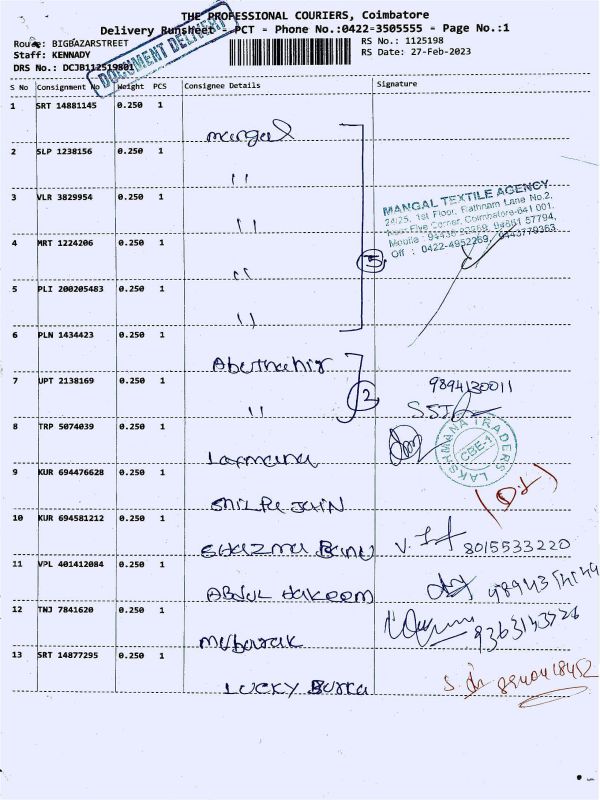 THE PROFESSIONAL COURIERS, Coimbatore
Delivery Runsheet - PCT - Phone No.:0422-3505555 - Page No.:1
Route: BIGBAZARSTREET RS No.: 1125198
Staff: KENNADY RS Date: 27-Feb-2023
DRS No.: DCJB112519801
DOCUMENT DELIVERY
S No Consignment No Weight PCS Consignee Details Signature
1 SRT 14881145 0.250 1
mangal
2 SLP 1238156 0.250 1
"
3 VLR 3829954 0.250 1
"
MANGAL TEXTILE AGENCY
24/25, 1st Floor, Rathnam Lane No.2,
Five Corner, Coimbatore-641 001.
Off : 0422-4952269, 9443779363
4 MRT 1224206 0.250 1
"
5
5 PLI 200205483 0.250 1
"
6 PLN 1434423 0.250 1
Abuthahir
7 UPT 2138169 0.250 1
" 2
9894130011
8 TRP 5074039 0.250 1
Laxmana
LAKSHMANA TRADERS
CBE-1
9 KUR 694476628 0.250 1
SHILPA JAIN
10 KUR 694581212 0.250 1
Shazma Banu
8015533220
11 VPL 401412084 0.250 1
ABDUL HAKEEM
12 TNJ 7841620 0.250 1
Mubarak
13 SRT 14877295 0.250 1
LUCKY Burka
8940418452